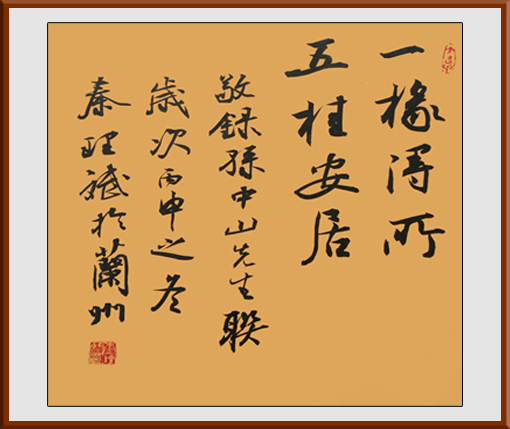 一椽得所
五桂安居
敬録孫中山先生聯
歲次丙申之冬
秦理斌於蘭州